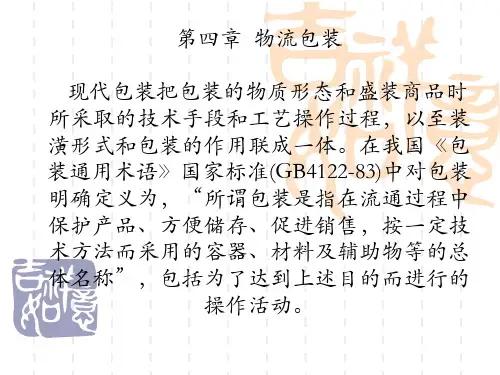 第四章 物流包装
现代包装把包装的物质形态和盛装商品时
所采取的技术手段和工艺操作过程，以至装
潢形式和包装的作用联成一体。在我国《包
装通用术语》国家标准(GB4122-83)中对包装
明确定义为，“所谓包装是指在流通过程中
保护产品、方便储存、促进销售，按一定技
术方法而采用的容器、材料及辅助物等的总
体名称”，包括为了达到上述目的而进行的
操作活动。
吉祥如意